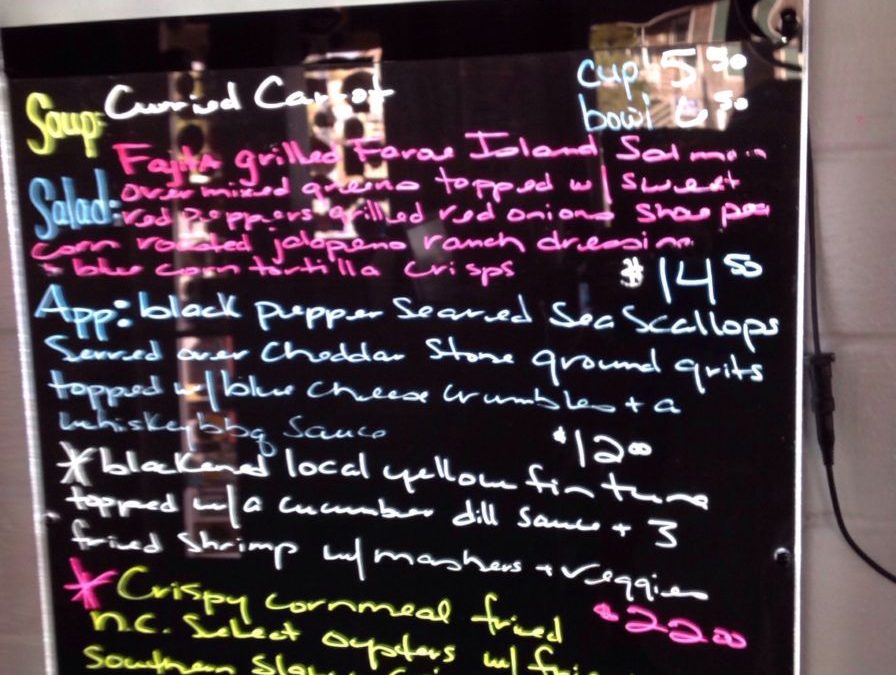 Soup: Curried Carrot cup 5.50
bowl 6.50
Fajita grilled Faroe Island Salmon
Salad: over mixed greens topped w/ sweet
red peppers grilled red onions
corn roasted jalapeno ranch dressing
+ blue corn tortilla crisps $14.50
App: black pepper Seared Sea Scallops
Served over Cheddar Stone ground grits
topped w/ blue cheese crumbles + a
whiskey bbq sauce $12.00
* blackened local yellow fin tuna
topped w/ a cucumber dill sauce + 3
fried shrimp w/ mashers + veggies
$22.00
* Crispy cornmeal fried
n.c. Select oysters w/
Southern